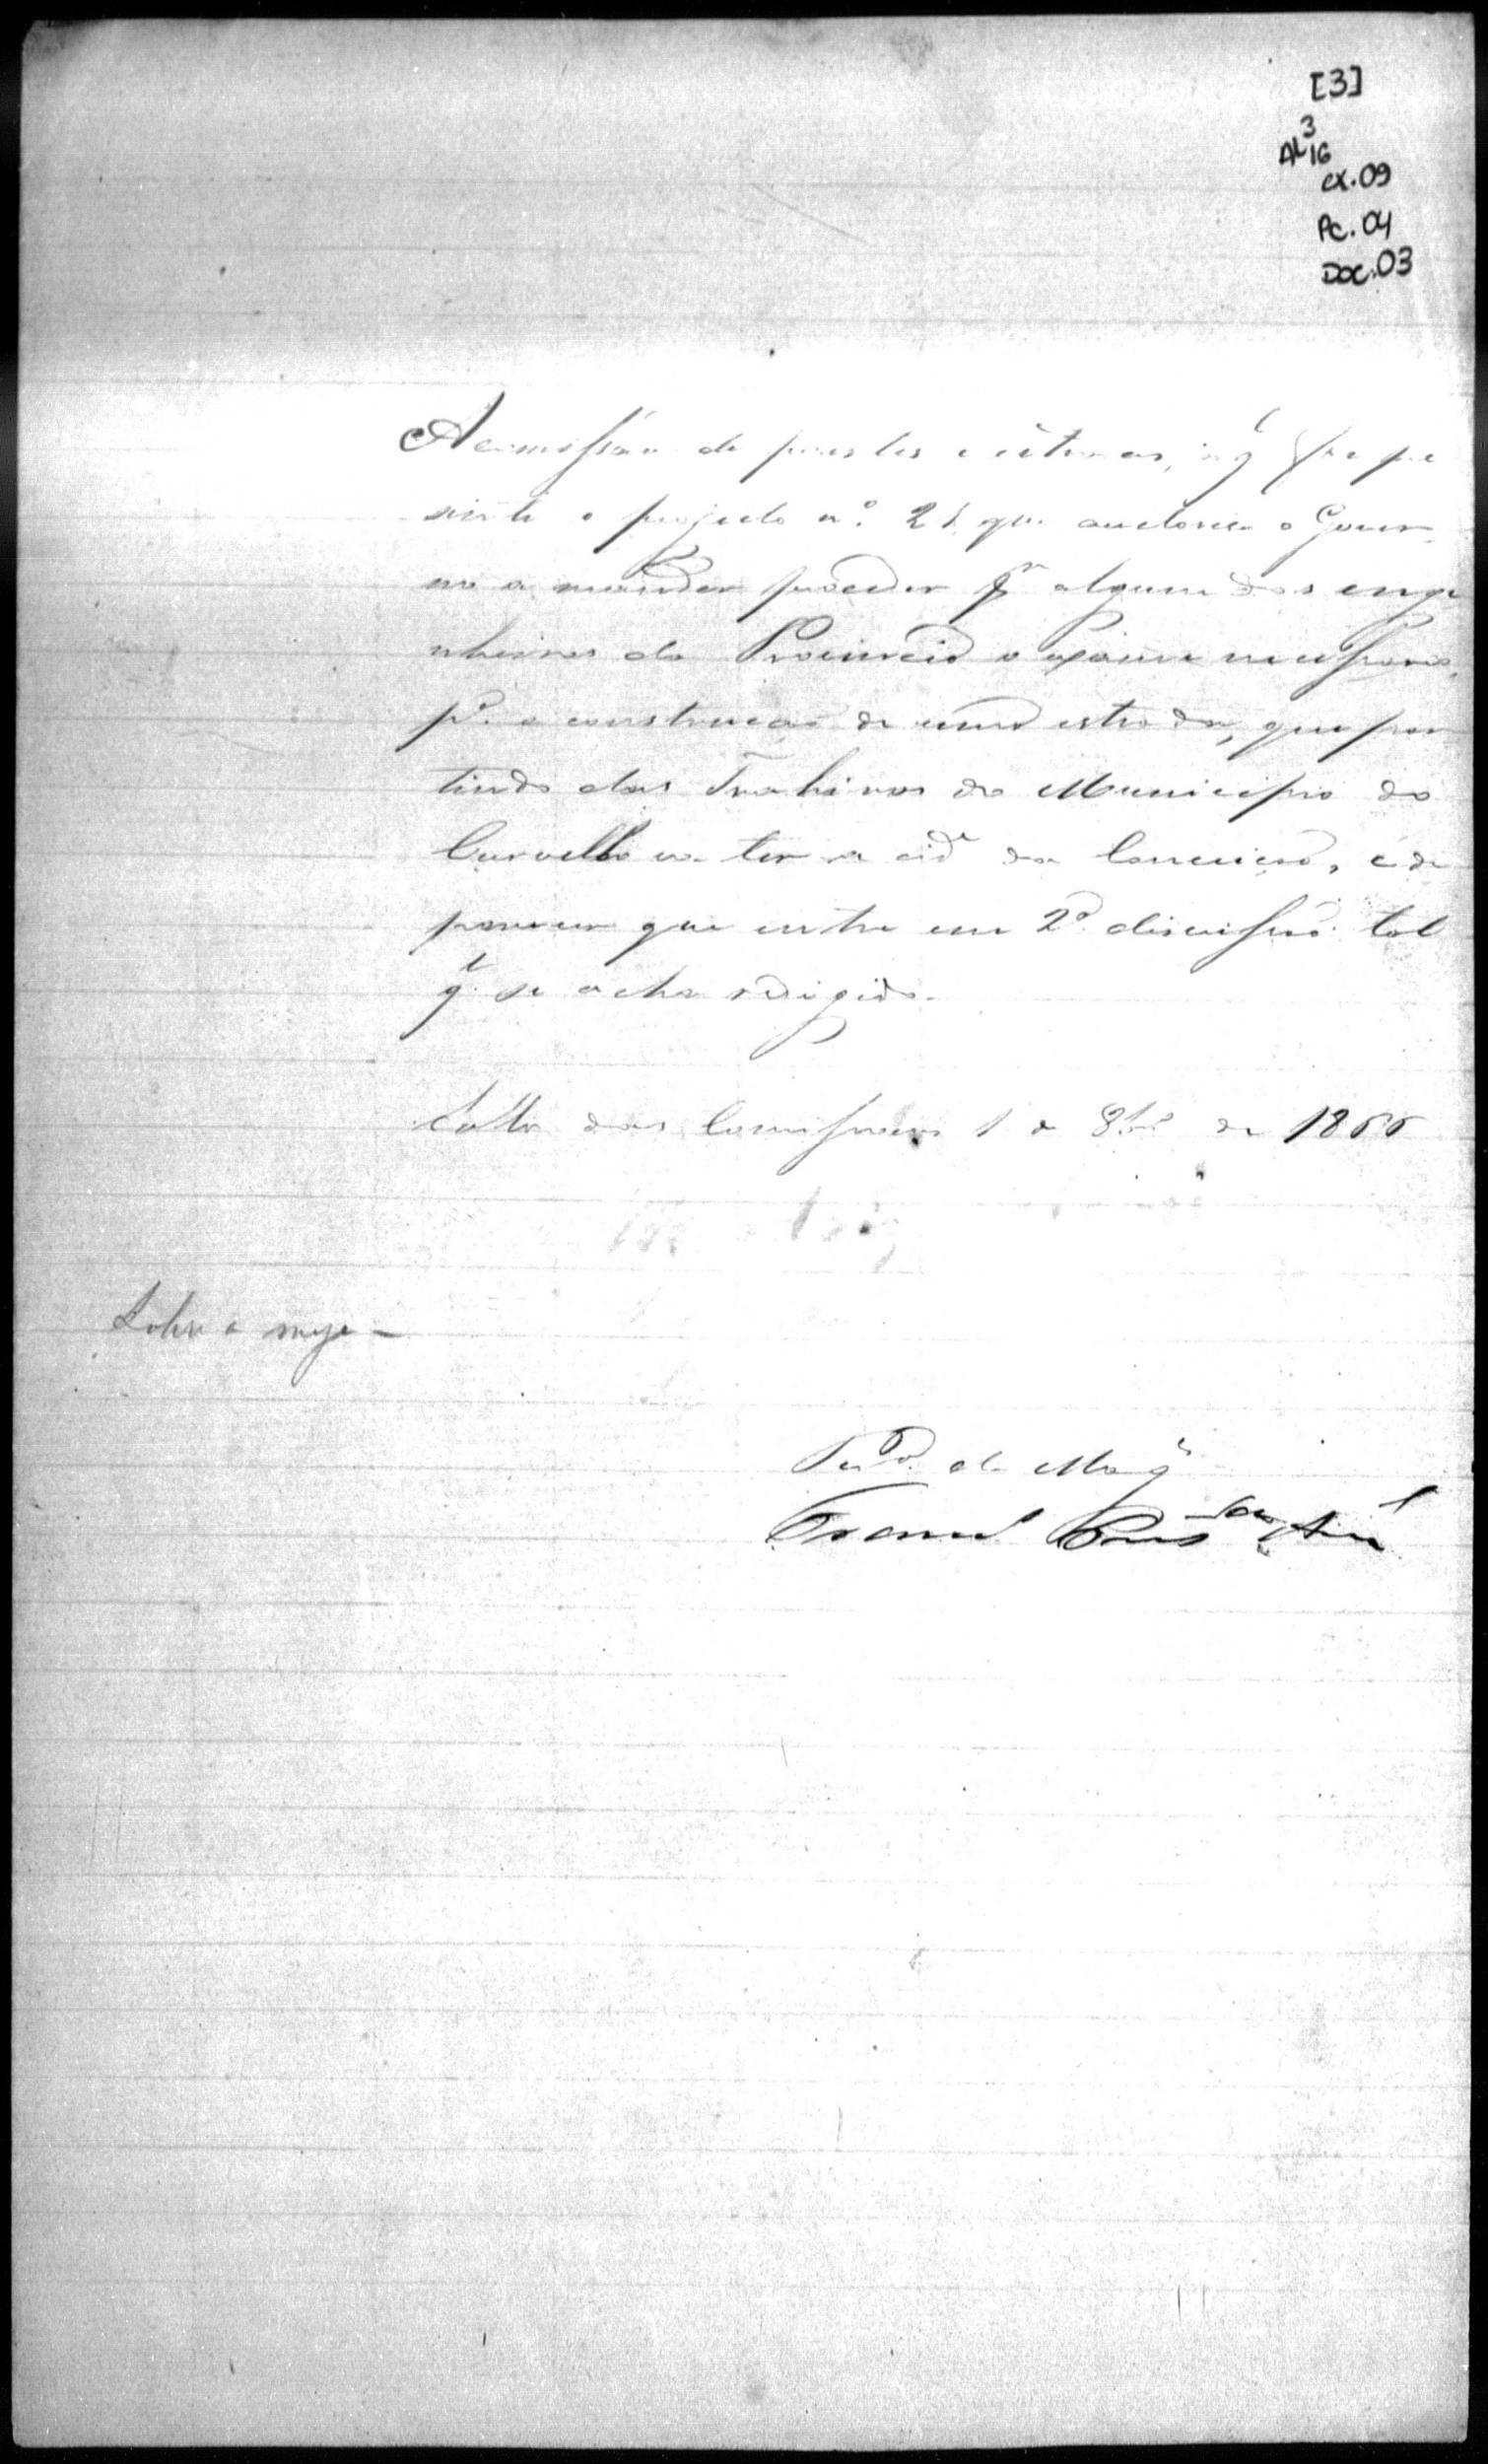 [3]
AL 3
16
cx.09
Pc.04
Doc.03
A commissão de pontes e estradas, a q.l foi pre
sente o projecto nº. 21 que auctorisa o Gover-
no a mandar proceder pr algum dos enge
nheiros da Provincia o exame necessario
pª. a construcção de uma estrada, que par
tindo das Trahiras do Municipio do
Curvello va ter a cid.e da Conceição, é de
parecer que entre em 2ª. discussão tal
q.l se acha redigido.
Salla das Commissoens 1 de 8br.o de 1855
Sobre a mesa –
Ped.o de